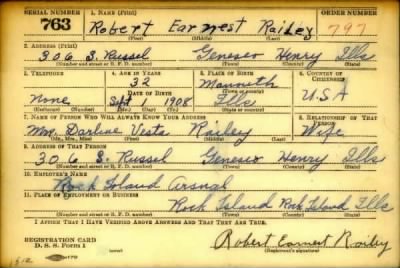 SERIAL NUMBER 1. NAME (Print) ORDER NUMBER
763 Robert Earnest Railey 797
2. ADDRESS (Print)
306 S. Russel Geneseo Henry Ills
(Number and street or R. F. D. number) (Town) (County) (State)
3. TELEPHONE 4. AGE IN YEARS 5. PLACE OF BIRTH 6. COUNTRY OF CITIZENSHIP
32 Monmouth
DATE OF BIRTH
None Sept 1 1908 Ills U.S.A
7. NAME OF PERSON WHO WILL ALWAYS KNOW YOUR ADDRESS 8. RELATIONSHIP OF THAT PERSON
Mrs. Darline Vesta Railey Wife
(Mr., Mrs., Miss) (First) (Middle) (Last)
9. ADDRESS OF THAT PERSON
306 S. Russel Geneseo Henry Ills
(Number and street or R. F. D. number) (Town) (County) (State)
10. EMPLOYER'S NAME
Rock Island Arsnal
11. PLACE OF EMPLOYMENT OR BUSINESS
Rock Island Rock Island Ills
(Number and street or R. F. D. number) (Town) (County) (State)
I AFFIRM THAT I HAVE VERIFIED ABOVE ANSWERS AND THAT THEY ARE TRUE.
REGISTRATION CARD
D. S. S. Form 1 Robert Earnest Railey
(Registrant's signature)